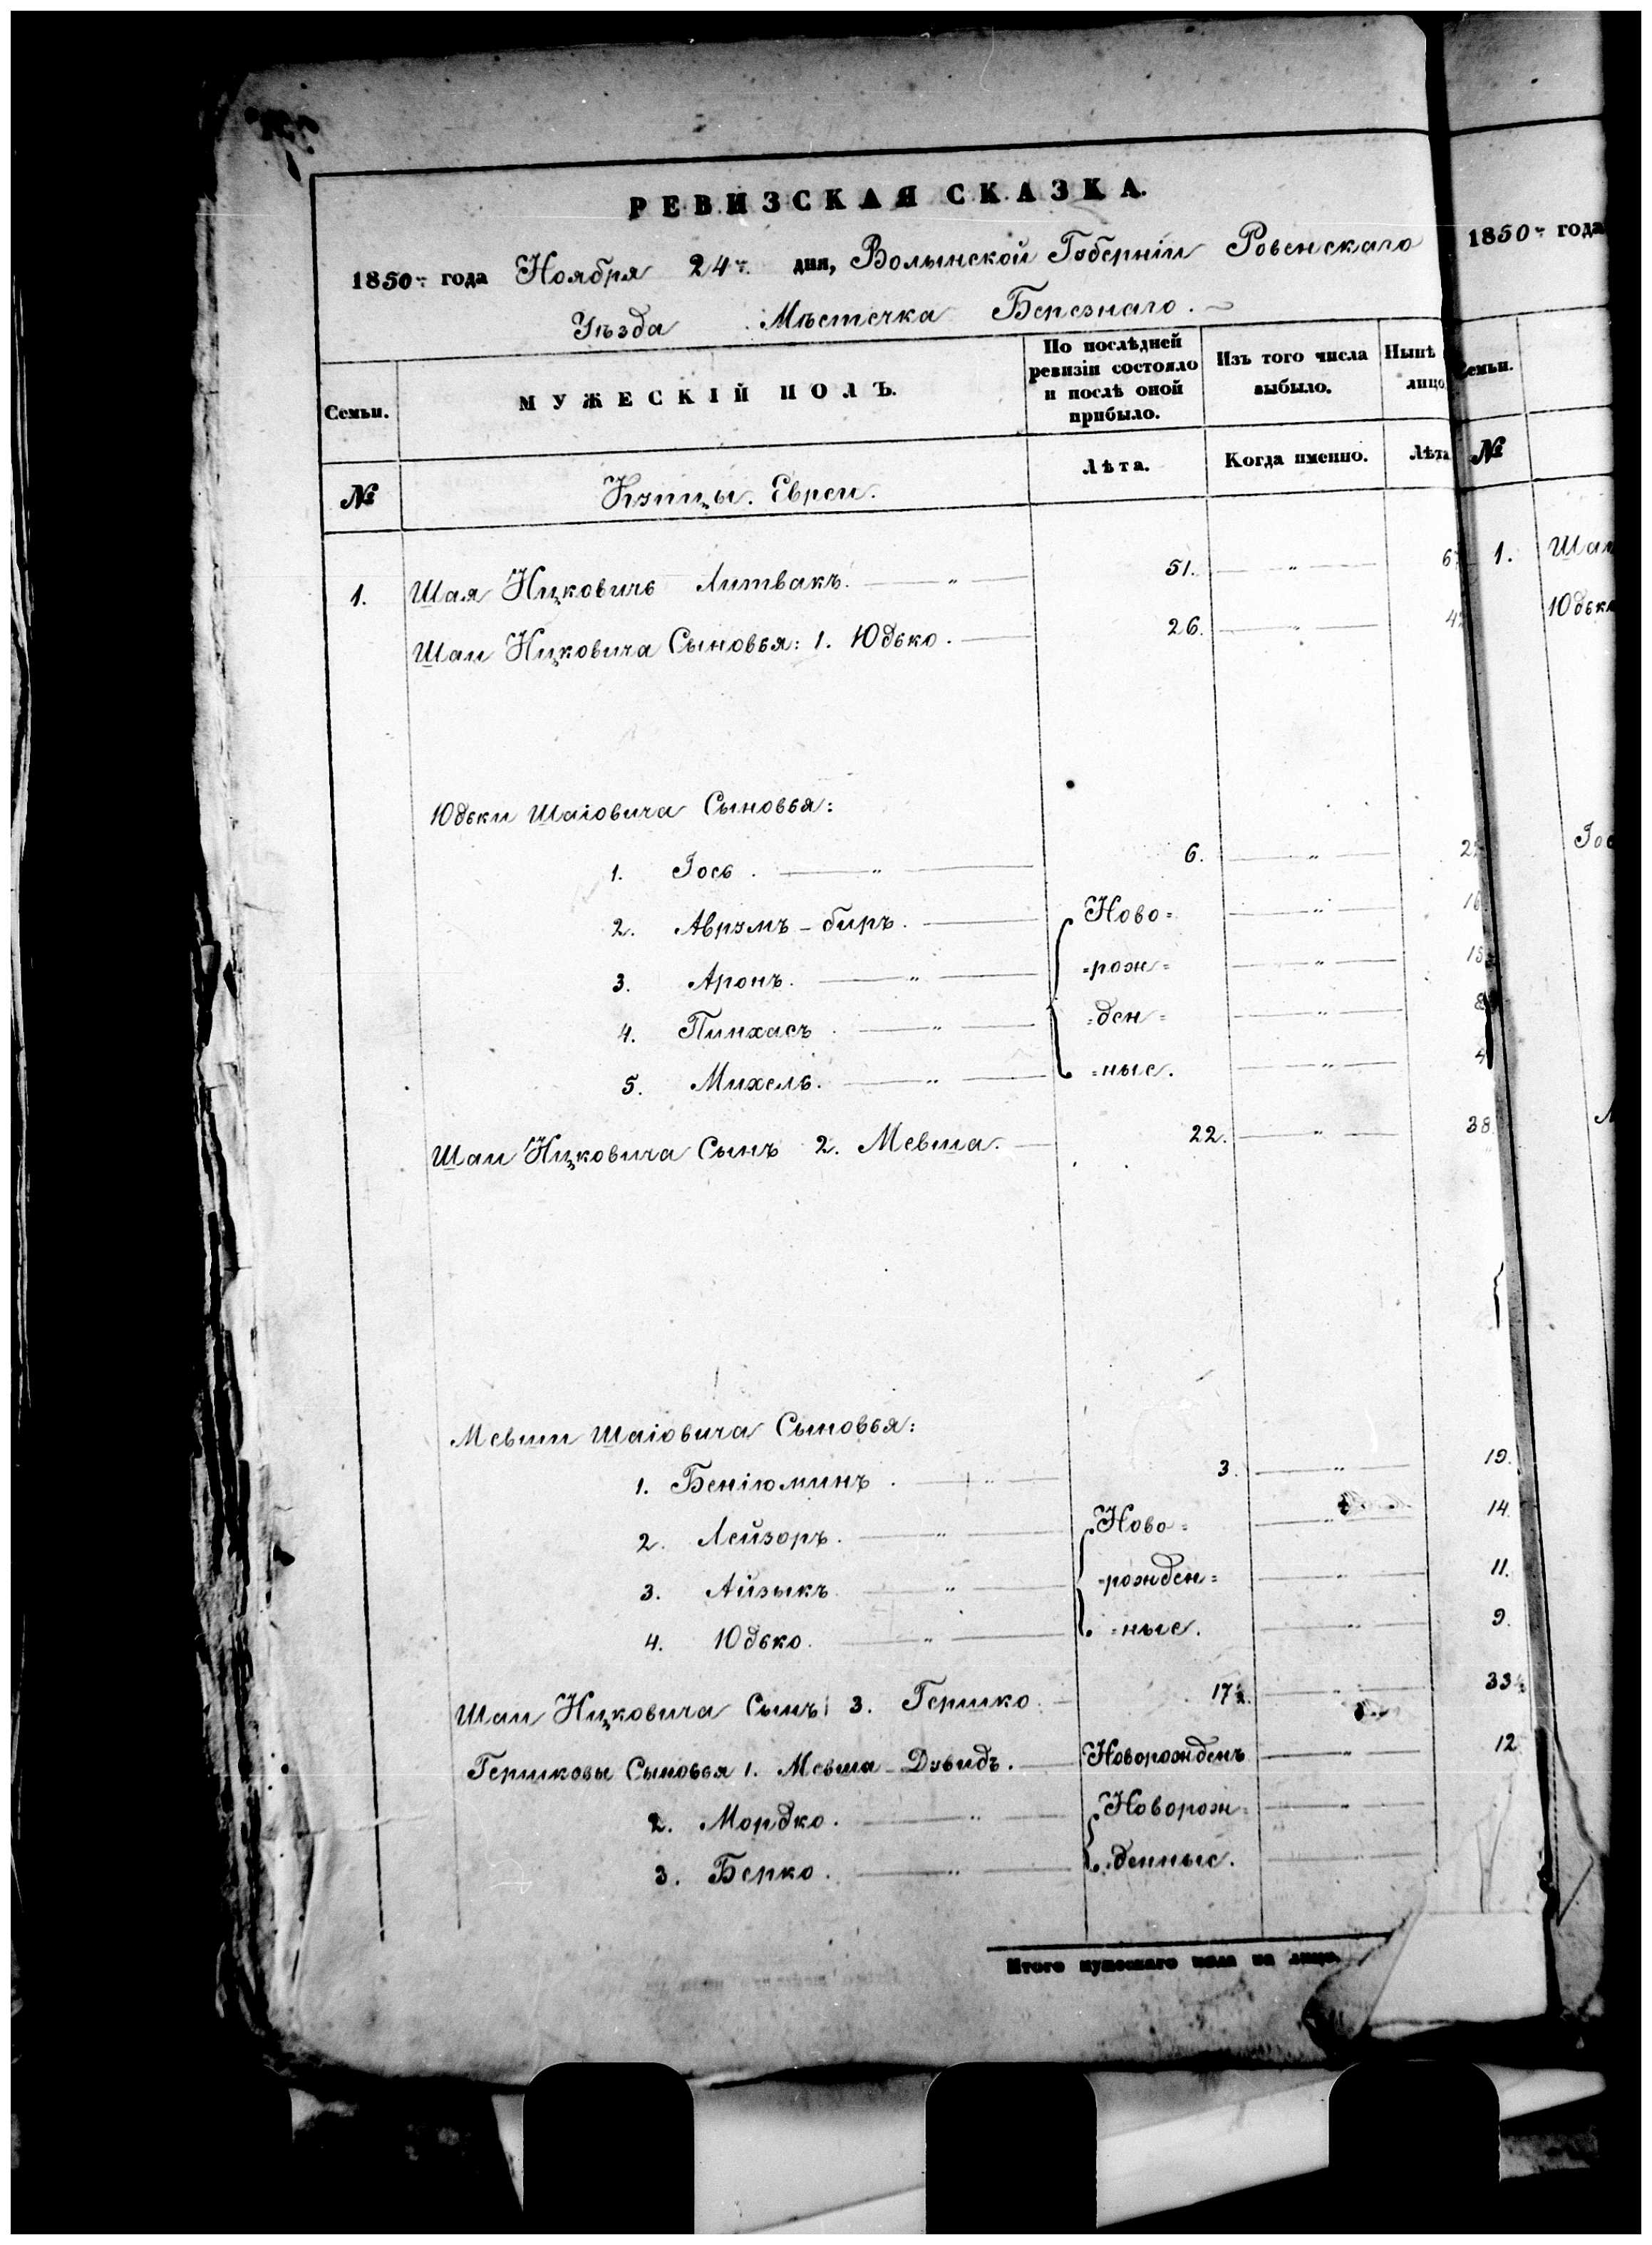 РЕВИЗСКАЯ СКАЗКА.
1850го года Ноября 24го дня, Волынской Губерніи Ровенскаго
Уѣзда Мѣстечка Березнаго.
Семьи. МУЖЕСКІЙ ПОЛЪ. По послѣдней ревизіи состояло и послѣ оной прибыло. Изъ того числа выбыло. Нынѣ лицо
№ Купцы. Евреи. Лѣта. Когда именно. Лѣта
1. Шая Ицковичь Литвакъ. — " — 51. — " — 6
Шаи Ицковича Сыновья: 1. Юдько. — 26. — " — 4
Юдьки Шаіовича Сыновья:
1. Іось. — " — 6. — " — 2
2. Аврумъ-биръ. — Ново= — " — 16
3. Аронъ. — " — =рож= — " — 15
4. Пинхасъ. — " — =ден= — " — 8
5. Михель. — " — =ные. — " — 4
Шаи Ицковича Сынъ 2. Мевша. — 22. — " — 38.
Мевши Шаіовича Сыновья:
1. Беніюминъ. — " — 3. — " — 19.
2. Лейзоръ. — " — Ново= — " — 14.
3. Айзыкъ — " — =рожден= — " — 11.
4. Юдько. — " — =ные. — " — 9.
Шаи Ицковича Сынъ: 3. Гершко. — 17½. — " — 33½
Гершковы Сыновья 1. Мевша-Дувидъ. — Новорожденъ — " — 12
2. Мордко. — " — Новорож= — " —
3. Берко. — " — =денные. — " —
Итого мужескаго пола на лицо.
1850го года
Семьи.
№
1. Шаи
Юдьк
Іос